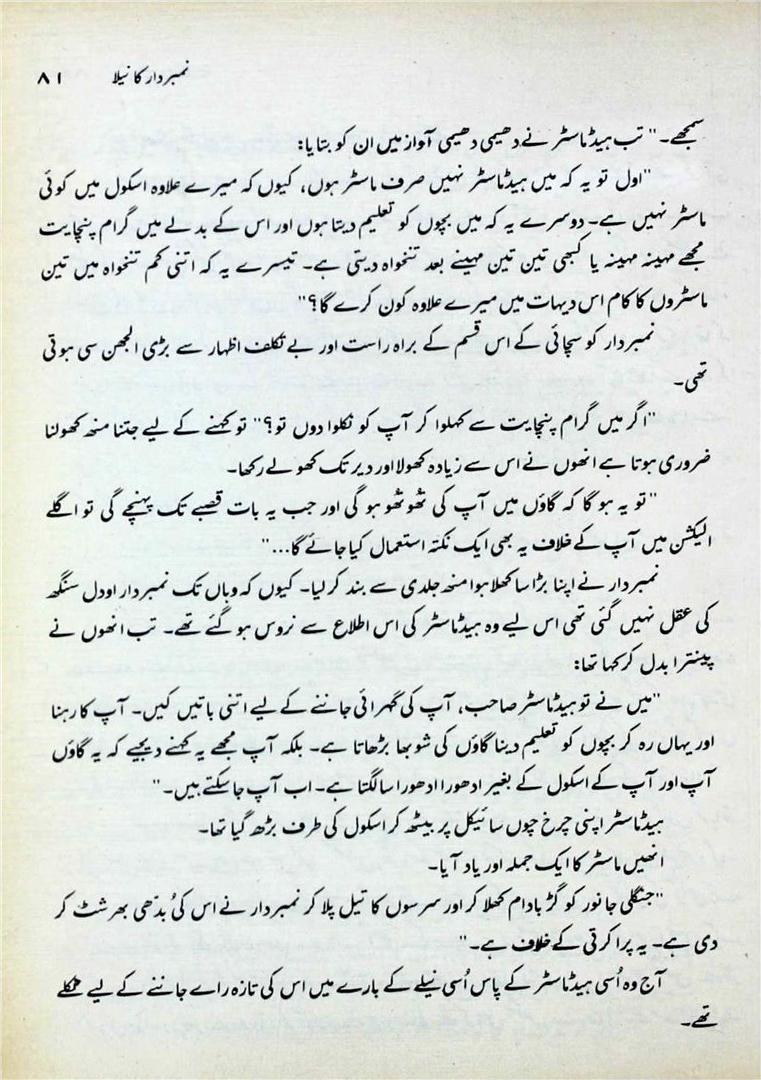 نمبردار کا نیلا ۸۱
سمجھے۔" تب ہیڈماسٹر نے دھیمی دھیمی آواز میں ان کو بتایا:
"اول تو یہ کہ میں ہیڈماسٹر نہیں صرف ماسٹر ہوں، کیوں کہ میرے علاوہ اسکول میں کوئی
ماسٹر نہیں ہے۔ دوسرے یہ کہ میں بچوں کو تعلیم دیتا ہوں اور اس کے بدلے میں گرام پنچایت
مجھے مہینہ مہینہ یا کبھی تین تین مہینے بعد تنخواہ دیتی ہے۔ تیسرے یہ کہ اتنی کم تنخواہ میں تین
ماسٹروں کا کام اس دیہات میں میرے علاوہ کون کرے گا؟"
نمبردار کو سچائی کے اس قسم کے براہ راست اور بے تکلف اظہار سے بڑی الجھن سی ہوتی
تھی۔
"اگر میں گرام پنچایت سے کہلوا کر آپ کو نکلوا دوں تو؟" تو کہنے کے لیے جتنا منھ کھولنا
ضروری ہوتا ہے انھوں نے اس سے زیادہ کھولا اور دیر تک کھولے رکھا۔
"تو یہ ہو گا کہ گاؤں میں آپ کی تھوتھو ہو گی اور جب یہ بات قصبے تک پہنچے گی تو اگلے
الیکشن میں آپ کے خلاف یہ بھی ایک نکتہ استعمال کیا جائے گا..."
نمبردار نے اپنا بڑا سا کھلا ہوا منھ جلدی سے بند کر لیا۔ کیوں کہ وہاں تک نمبردار اودل سنگھ
کی عقل نہیں گئی تھی اس لیے وہ ہیڈماسٹر کی اس اطلاع سے نروس ہو گئے تھے۔ تب انھوں نے
پینترا بدل کر کہا تھا:
"میں نے تو ہیڈماسٹر صاحب، آپ کی گہرائی جاننے کے لیے اتنی باتیں کیں۔ آپ کا رہنا
اور یہاں رہ کر بچوں کو تعلیم دینا گاؤں کی شوبھا بڑھاتا ہے۔ بلکہ آپ مجھے یہ کہنے دیجیے کہ یہ گاؤں
آپ اور آپ کے اسکول کے بغیر ادھورا ادھورا سا لگتا ہے۔ اب آپ جا سکتے ہیں۔"
ہیڈماسٹر اپنی چرخ چوں سائیکل پر بیٹھ کر اسکول کی طرف بڑھ گیا تھا۔
انھیں ماسٹر کا ایک جملہ اور یاد آیا۔
"جنگلی جانور کو گڑ بادام کھلا کر اور سرسوں کا تیل پلا کر نمبردار نے اس کی بُدھی بھرشٹ کر
دی ہے۔ یہ پراکرتی کے خلاف ہے۔"
آج وہ اُسی ہیڈماسٹر کے پاس اُسی نیلے کے بارے میں اس کی تازہ رائے جاننے کے لیے نکلے
تھے۔